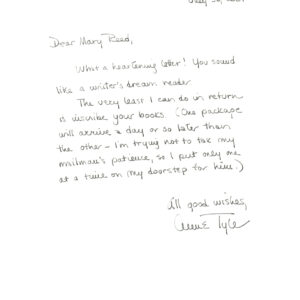 Dear Mary Reed,
What a heartening letter! You sound
like a writer's dream reader.
The very least I can do in return
is inscribe your books. (One package
will arrive a day or so later than
the other – I'm trying not to tax my
mailman's patience, so I put only one
at a time on my doorstep for him.)
All good wishes,
Anne Tyler